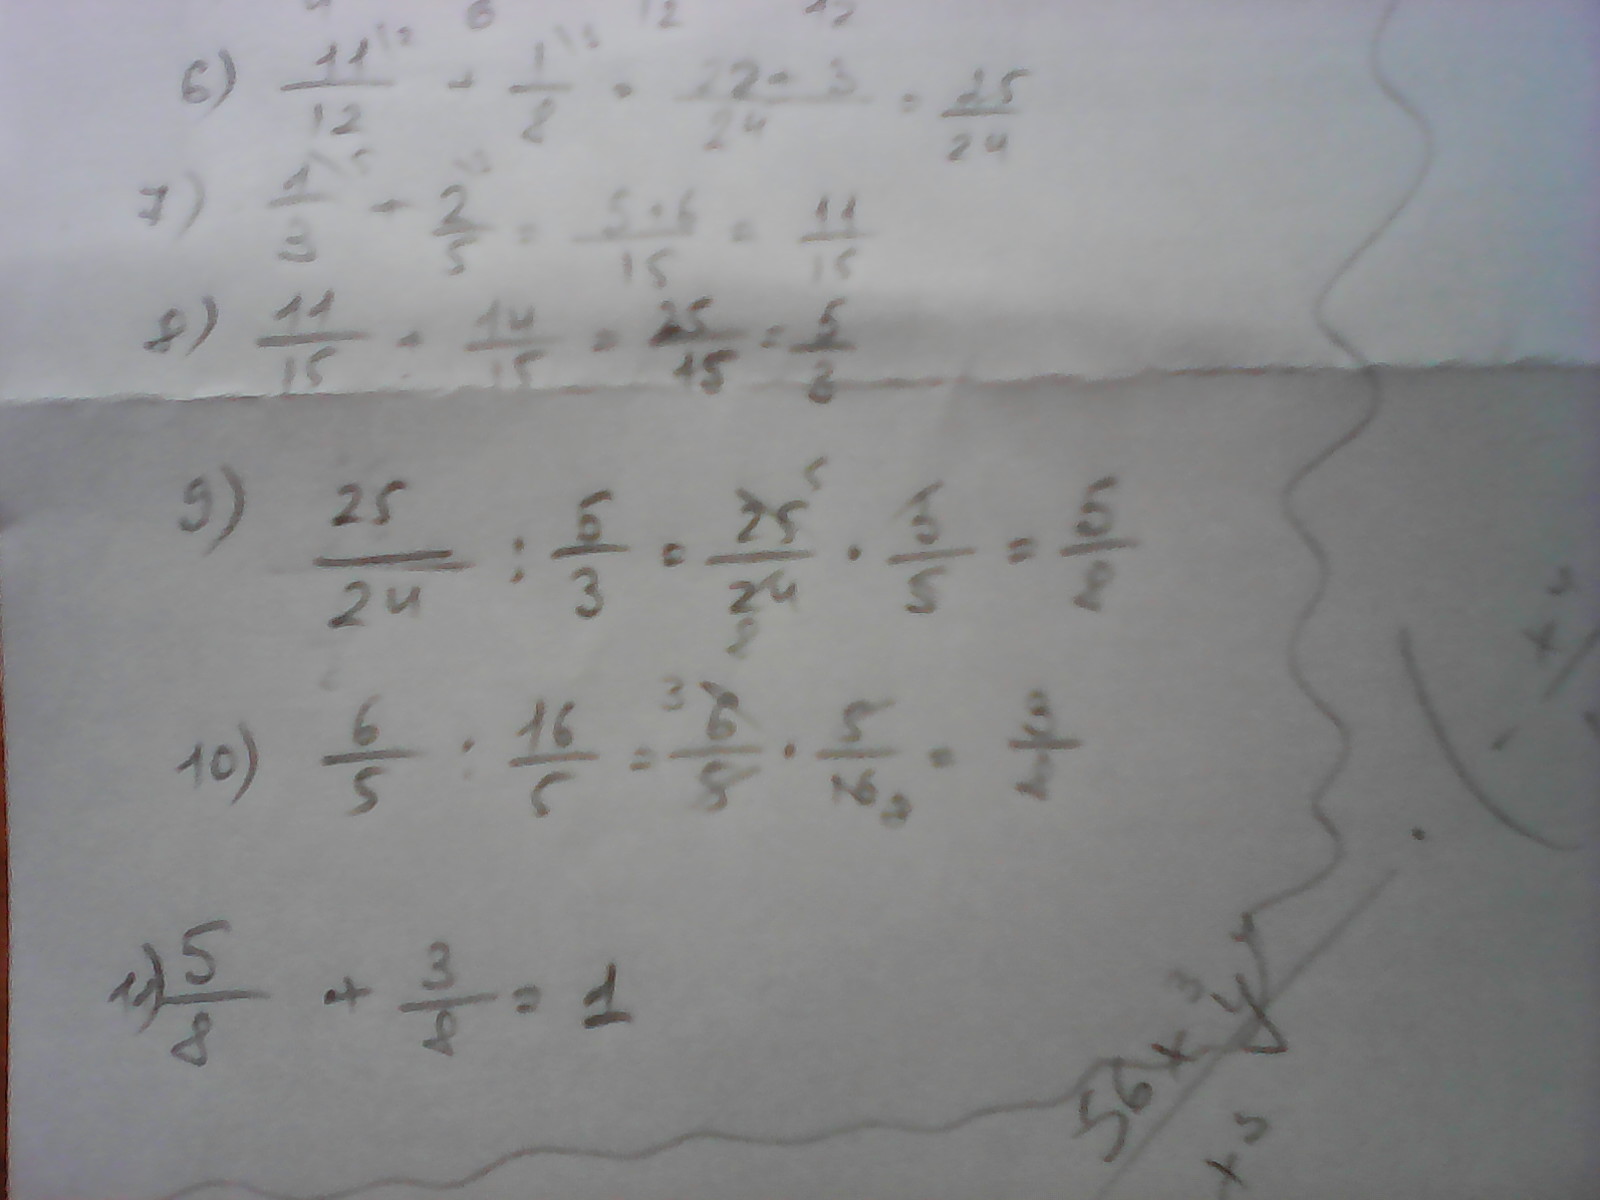 6) 11/12 + 1/8 = 22+3/24 = 25/24
7) 1/3 + 2/5 = 5+6/15 = 11/15
8) 11/15 + 14/15 = 25/15 = 5/3
9) 25/24 : 5/3 = 25/24 · 3/5 = 5/8
10) 6/5 : 16/5 = 6/5 · 5/16 = 3/8
11) 5/8 + 3/8 = 1
56x³y